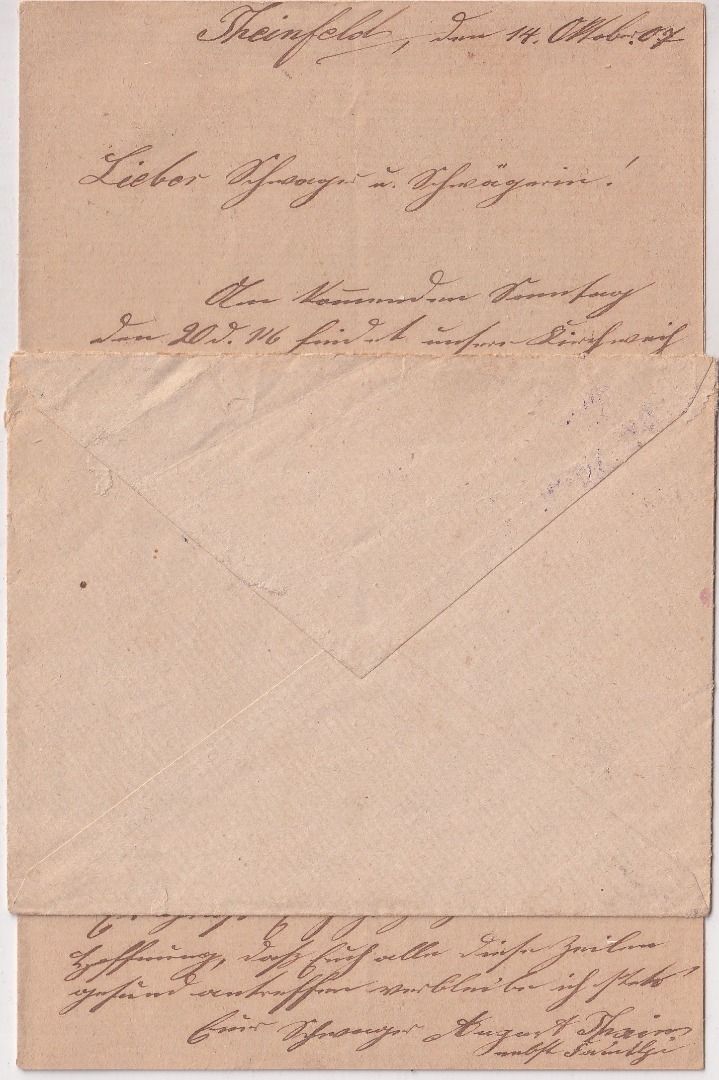 Theinfeld, den 14. Oktober 07
Lieber Schwager u. Schwägerin!
Am kommenden Sonntag
den 20 d. M findet unsere Kirchweih
Hoffnung, daß Euch alle diese Zeilen
gesund antreffen verbleibe ich stets
Euer Schwager August Thein
nebst Familie